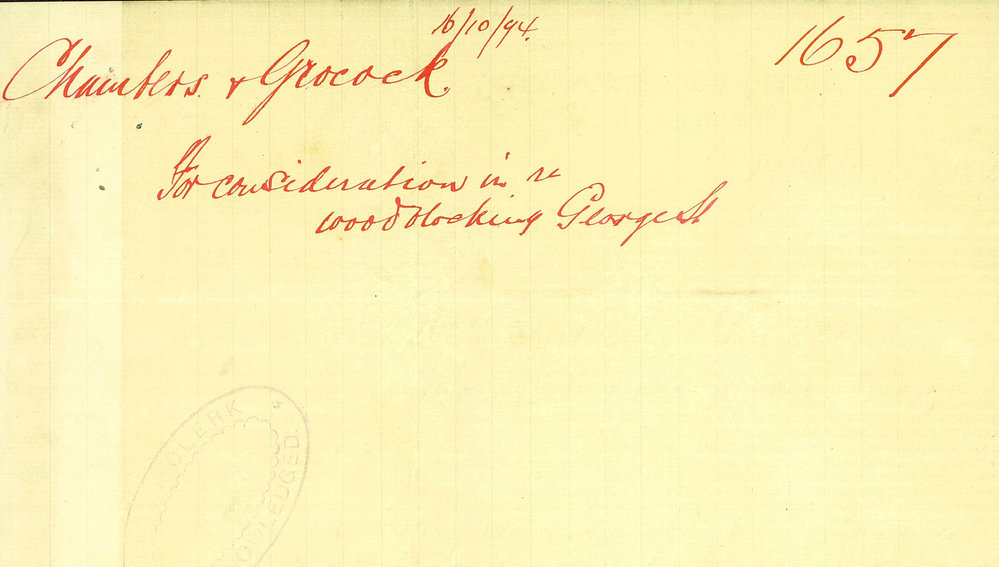 16/10/94.
1657
Chambers & Grocock.
For consideration in re
woodblocking George St
CLERK
OWLEDGED.